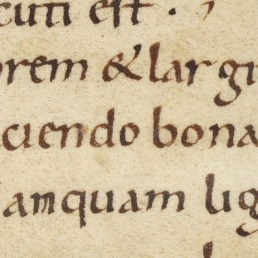 cuti est ·
orem & largi
ciendo bona
tamquam lig